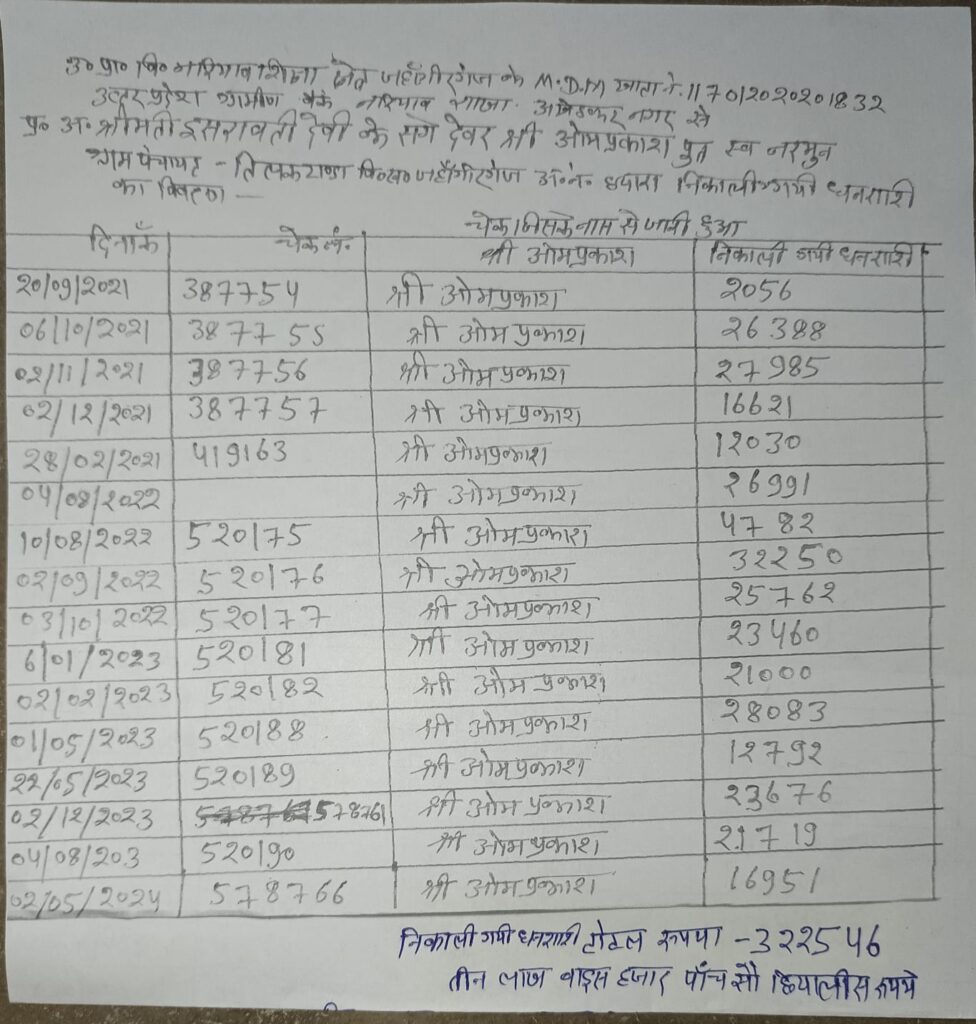 उ० प्रा० वि० नरियाव शिक्षा क्षेत्र जहाँगीरगंज के M.D.M खाता नं. 117012020201832
उत्तर प्रदेश ग्रामीण बैंक नरियाव शाखा अम्बेडकर नगर से
प्र० अ० श्रीमती इसरावती देवी के सगे देवर श्री ओमप्रकाश पुत्र स्व नरमुन
ग्राम पंचायत - तिलकटाण्डा वि०ख० जहाँगीरगंज अ०न० द्वारा निकाली गयी धनराशी
का विवरण —
चेक जिसके नाम से जारी हुआ
दिनाँक चेक नं. श्री ओमप्रकाश निकाली गयी धनराशी
20/09/2021 387754 श्री ओमप्रकाश 2056
06/10/2021 387755 श्री ओमप्रकाश 26388
02/11/2021 387756 श्री ओमप्रकाश 27985
02/12/2021 387757 श्री ओमप्रकाश 16621
28/02/2021 419163 श्री ओमप्रकाश 12030
04/08/2022 श्री ओमप्रकाश 26991
10/08/2022 520175 श्री ओमप्रकाश 4782
02/09/2022 520176 श्री ओमप्रकाश 32250
03/10/2022 520177 श्री ओमप्रकाश 25762
6/01/2023 520181 श्री ओमप्रकाश 23460
02/02/2023 520182 श्री ओमप्रकाश 21000
01/05/2023 520188 श्री ओमप्रकाश 28083
22/05/2023 520189 श्री ओमप्रकाश 12792
02/12/2023 578761 श्री ओमप्रकाश 23676
04/08/203 520190 श्री ओमप्रकाश 21719
02/05/2024 578766 श्री ओमप्रकाश 16951
निकाली गयी धनराशी टोटल रूपया - 322546
तीन लाख बाइस हजार पाँच सौ छियालीस रूपये